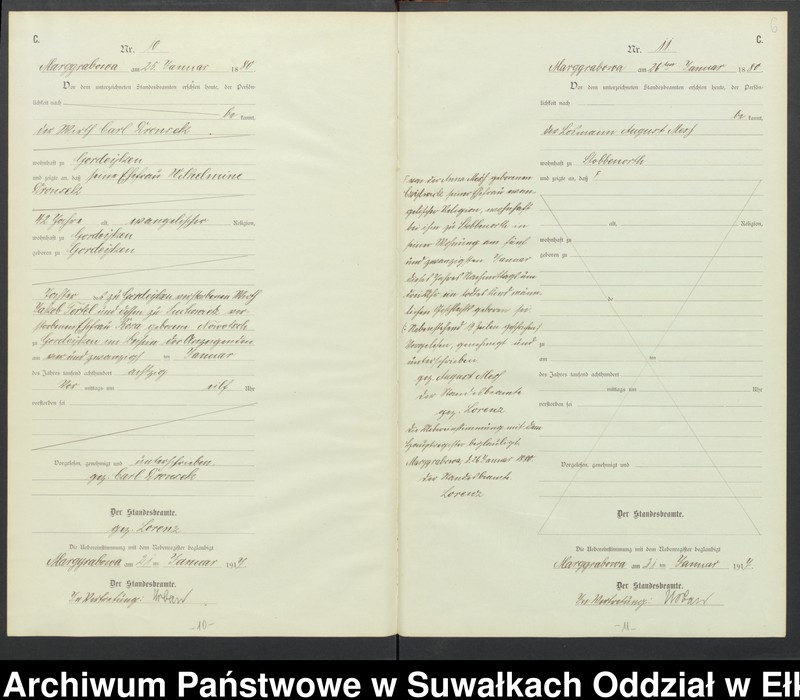 C.
Nr. 10
Marggrabowa am 25 Januar 1880.
Vor dem unterzeichneten Standesbeamten erschien heute, der Persön-
lichkeit nach
be kannt,
der Wirth Carl
wohnhaft zu Gordeyken
und zeigte an, daß seine Ehefrau Wilhelmine
42 Jahre alt, evangelischer Religion,
wohnhaft zu Gordeyken
geboren zu Gordeyken
Tochter des zu Gordeyken verstorbenen Wirth
Jakob und dessen zu ver-
storbenen Ehefrau geborene
zu Gordeyken im Beisein des Anzeigenden
am vier und zwanzigsten Januar
des Jahres tausend achthundert achtzig
Vor mittags um elf Uhr
verstorben sei
Vorgelesen, genehmigt und unterschrieben
gez. Carl
Der Standesbeamte.
gez. Lorenz
Die Uebereinstimmung mit dem Nebenregister beglaubigt
Marggrabowa am Januar 191
Der Standesbeamte.
In Vertretung: Urban
-10-
6
C.
Nr. 11
Marggrabowa am 26 Januar 1880
Vor dem unterzeichneten Standesbeamten erschien heute, der Persön-
lichkeit nach
be kannt,
der Losmann August
wohnhaft zu Stobbenorth
und zeigte an, daß
von der Anna geborenen
seiner Ehefrau evan-
gelischer Religion, wohnhaft
bei ihm zu Stobbenorth in
seiner Wohnung am fünf
und zwanzigsten Januar
dieses Jahres Nachmittags um
drei Uhr ein todtes Kind männ-
lichen Geschlechts geboren sei
Vorgelesen, genehmigt und
unterschrieben
gez. August
der Standesbeamte
gez. Lorenz
die Uebereinstimmung mit dem
Hauptregister beglaubigt.
Marggrabowa, d. 26 Januar 1880.
der Standesbeamte.
Lorenz
alt, Religion,
wohnhaft zu
geboren zu
zu
am ten
des Jahres tausend achthundert
mittags um Uhr
verstorben sei
Vorgelesen, genehmigt und
Der Standesbeamte.
Die Uebereinstimmung mit dem Nebenregister beglaubigt
Marggrabowa am Januar 191
Der Standesbeamte.
In Vertretung: Urban
-11-
Archiwum Państwowe w Suwałkach Oddział w Ełk